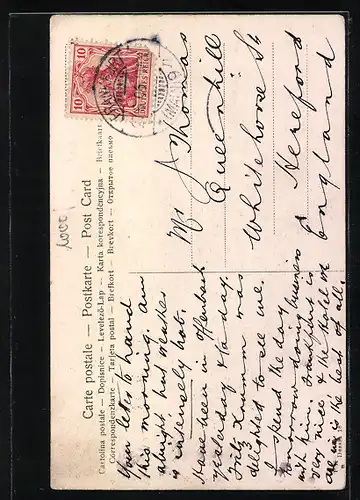 Carte postale — Postkarte — Post Card
Cartolina postale — Dopisnice — Levelező-Lap — Karta korespondencyjna — Briefkaart
Correspondenzkarte — Tarjeta postal — Brefkort — Brevkort — Открытое письмо
10
10
DEUTSCHES REICH
1000
Mr J Thomas
Queenhill
Whitehorse St
Hereford
England
Your letter to hand
this morning. Am
alright but weather
is intensely hot.
Have been in Offenbach
yesterday & today.
Fritz was
delighted to see me.
I spend the day
tomorrow doing business
with him. Frankfurt is
very nice & the Hotel we
are in is the best of all.